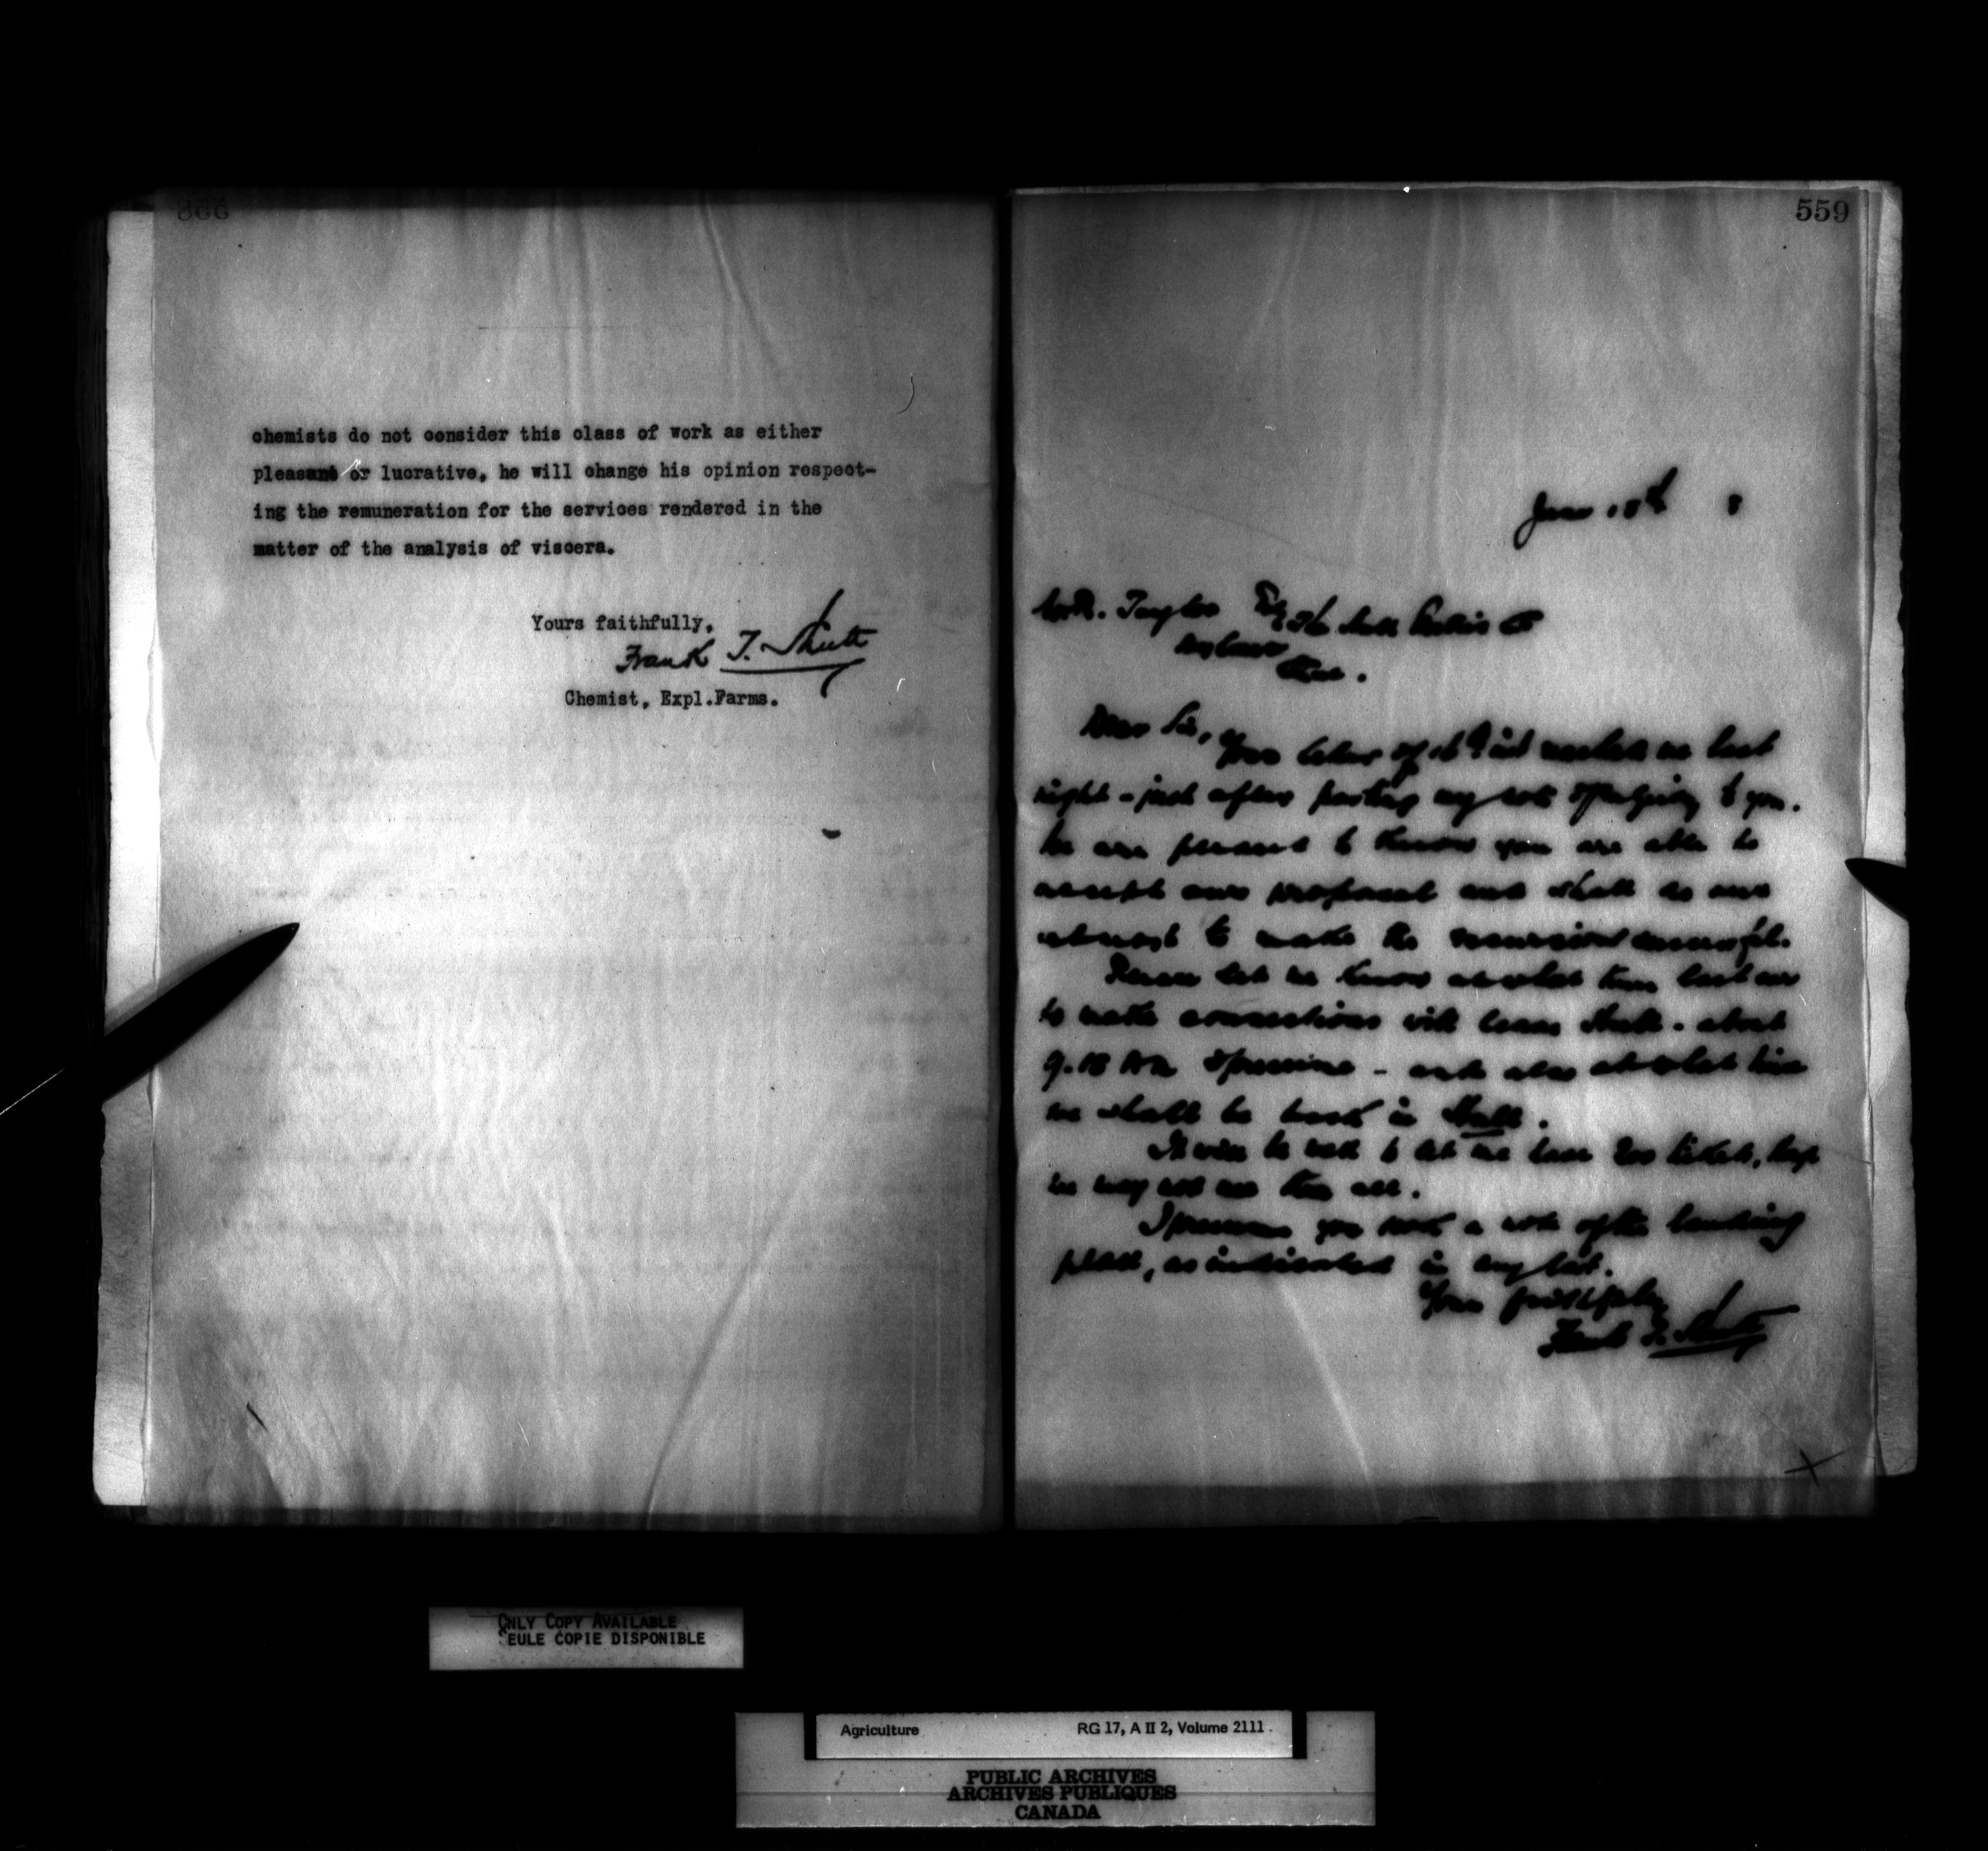 chemists do not consider this class of work as either
pleasant or lucrative, he will change his opinion respect-
ing the remuneration for the services rendered in the
matter of the analysis of viscera.
Yours faithfully,
Frank T. Shutt
Chemist, Expl.Farms.
559
June 18th 8
W.R. Taylor Esq
Aylmer
Que.
Dear Sir,
Your letter of 16th inst reached me last
night - just after posting my note to you.
We are pleased to know you are able to
accept our proposal and shall do our
utmost to make the excursion successful.
Please let me know at what time last car
to make connections will leave Hull - about
9.15 AM I presume - and also at what time
we shall be back in Hull.
It will be well to let me have 200 tickets,
we may not use them all.
I presume you took a note of the landing
place, as indicated in my last.
Yours faithfully
Frank T. Shutt
ONLY COPY AVAILABLE
SEULE COPIE DISPONIBLE
Agriculture RG 17, A II 2, Volume 2111.
PUBLIC ARCHIVES
ARCHIVES PUBLIQUES
CANADA